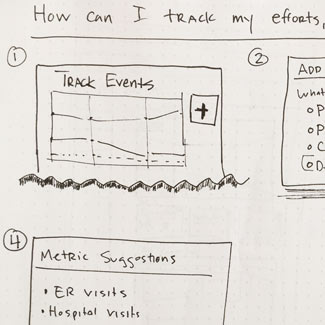 How can I track my efforts,
1
Track Events
+
2
ADD
What
P
P
C
D
4
Metric Suggestions
• ER visits
• Hospital visits